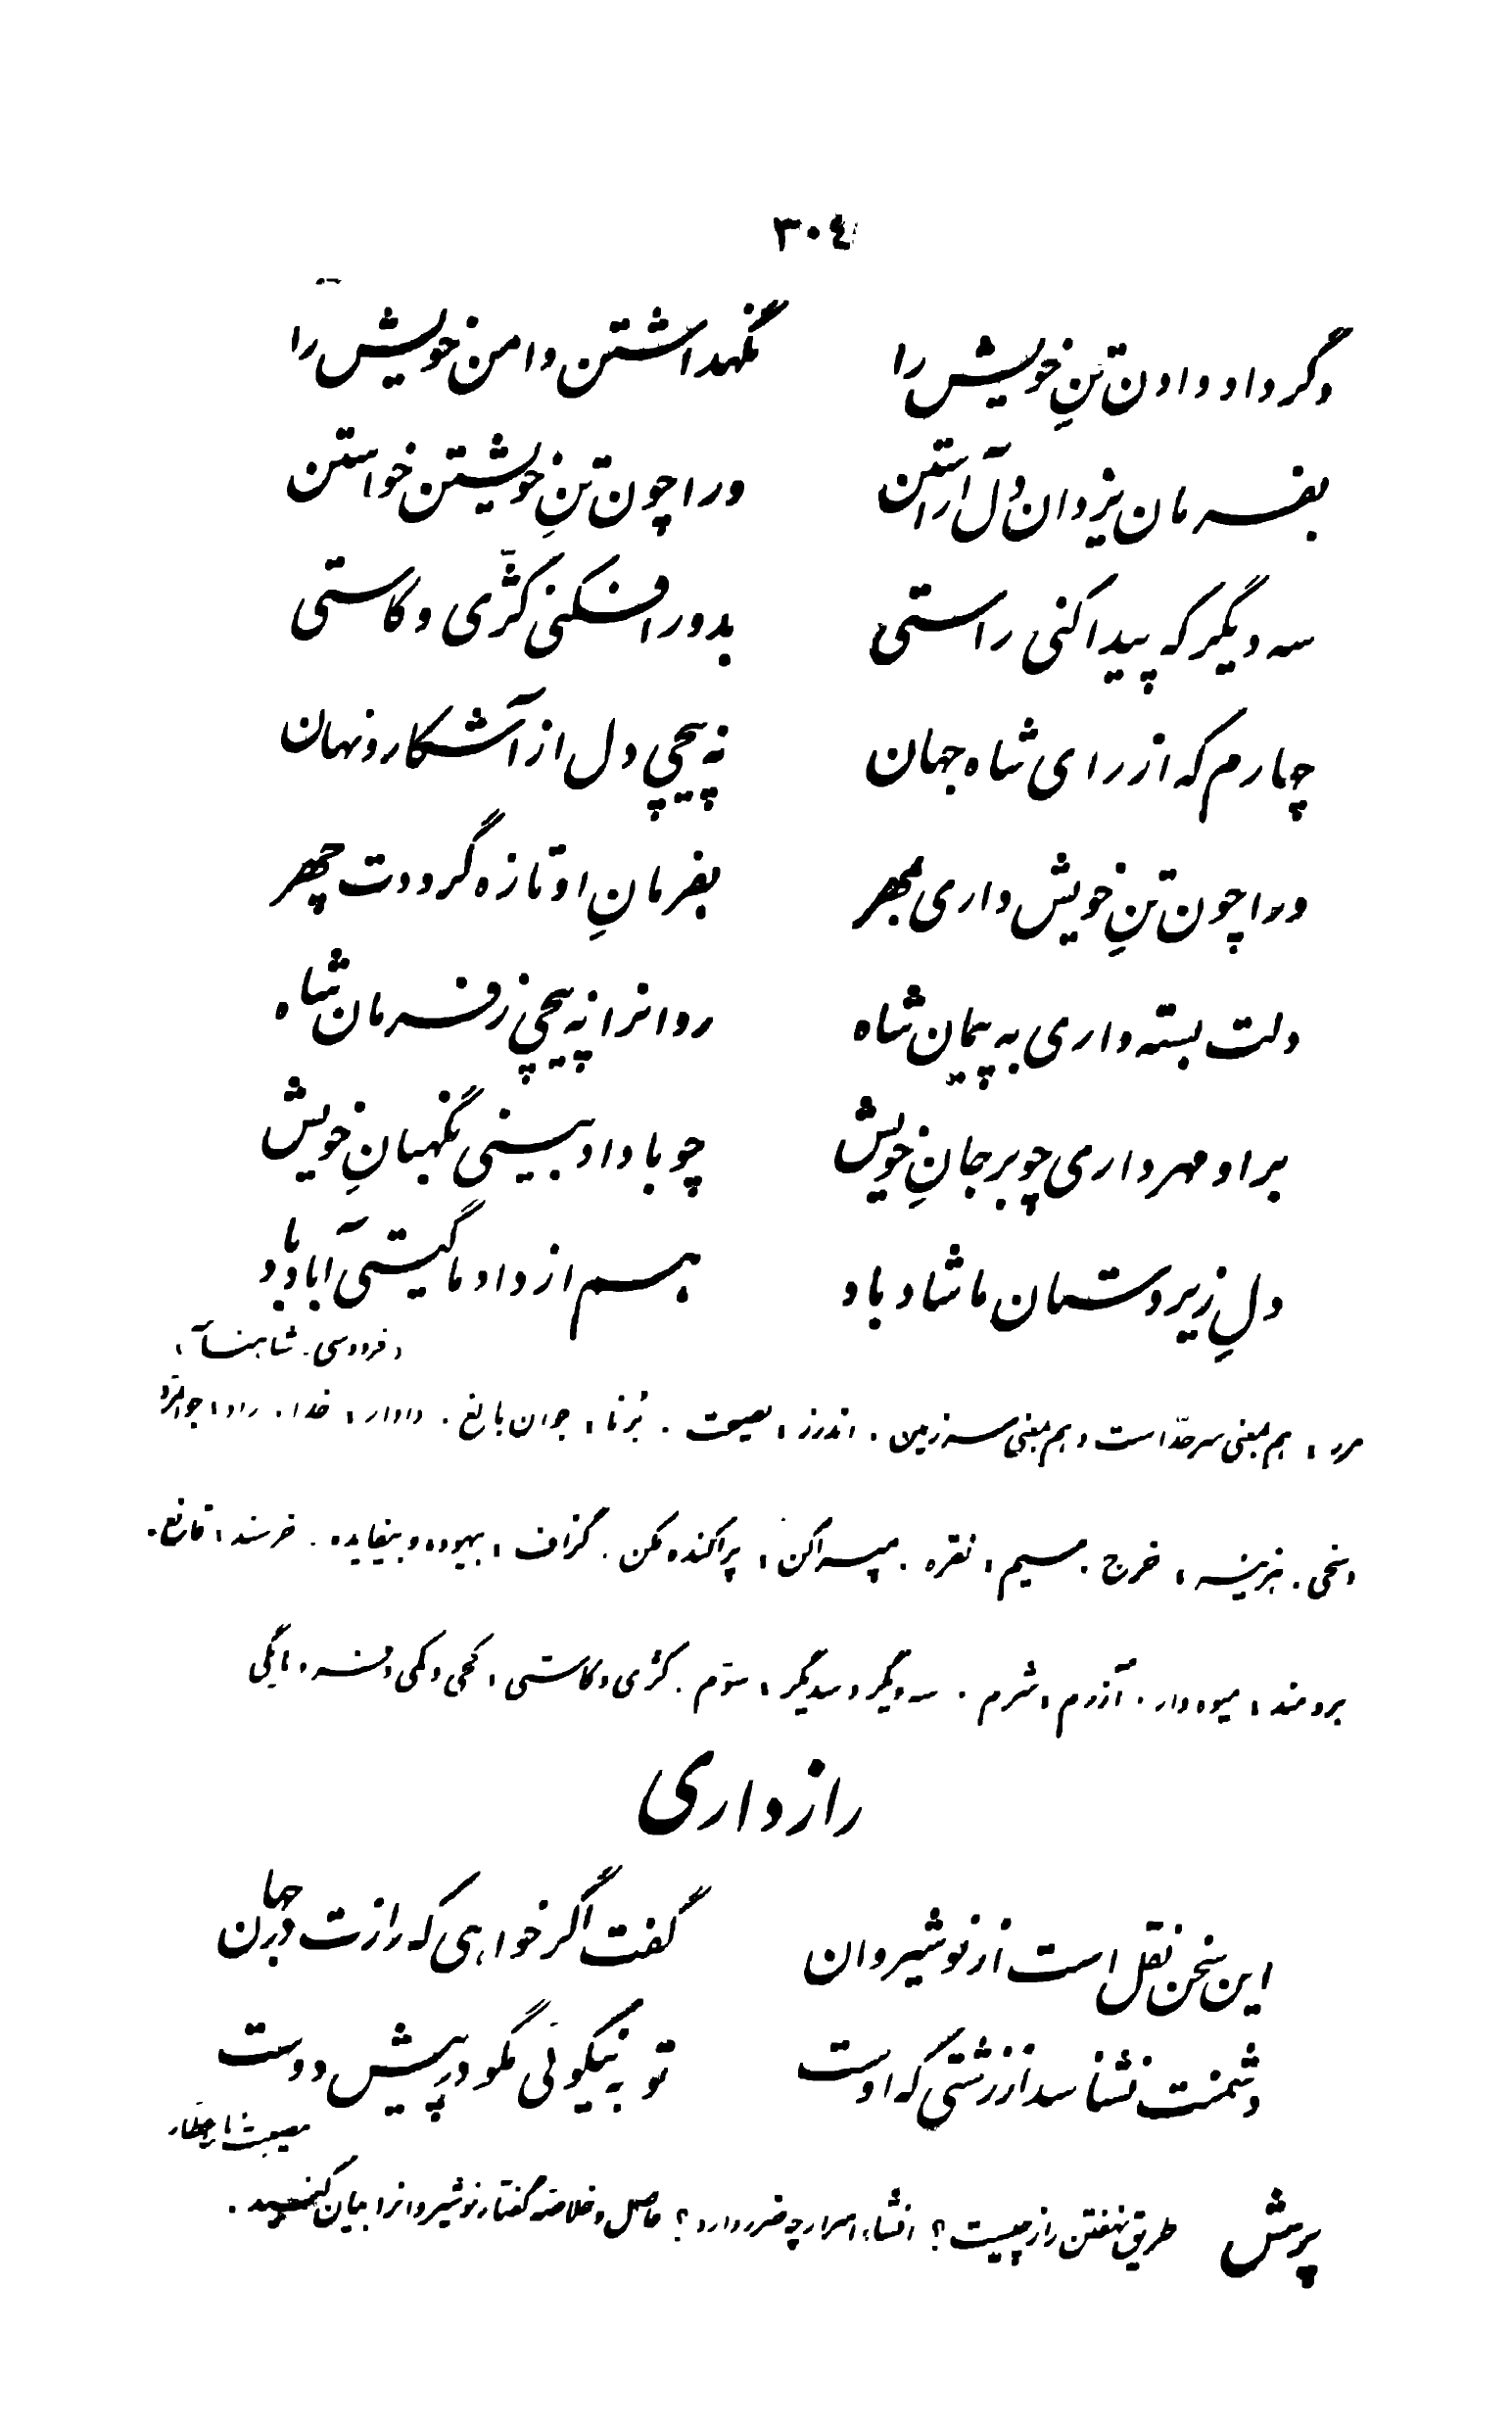 ۳۰۴
دگر داد دادن تنِ خویش را نگهداشتن دامن خویش را
بفرمان یزدان دل آراستن ورا چون تنِ خویشتن خواستن
سه دیگر که پیدا کنی راستی بدور افکنی کژّی و کاستی
چهارم که از رای شاه جهان نه پیچی دل از آشکار و نهان
ورا چون تنِ خویش داری بمهر بفرمانِ او تازه گرددت چهر
دلت بسته داری به پیمان شاه روانرا نه پیچی ز فرمان شاه
براو مهر داری چو بر جانِ خویش چو با داد بینی نگهبانِ خویش
دلِ زیردستان ما شاد باد هم از داد ما گیتی آباد باد
«فردوسی. شاهنامه»
مرز، هم بمعنی سرحدّ است و هم بمعنی سرزمین. اندرز، نصیحت. بُرنا، جوان بالغ. دادار، خدا. راد، جوانمرد
و سخی. هزینه، خرج. سیم، نقره. مپراکن، پراکنده مکن. گزاف، بیهوده و بیفایده. خرسند، قانع.
برومند، میوه‌دار. آزرم، شرم. سه دیگر و سدیگر، سوّم. کژی و کاستی، کجی و کمی و فرومایگی
رازداری
این سخن نقل است از نوشیروان گفت اگر خواهی که رازت در جهان
دشمنت نشناسد از زشتی که اوست تو به نیکوئی مگو در پیش دوست
مصیبت‌نامه عطار
پرسش طریق نهفتن راز چیست؟ افشاء اسرار چه ضرر دارد؟ حاصل و خلاصه گفتار نوشیروانرا بیان کنید.